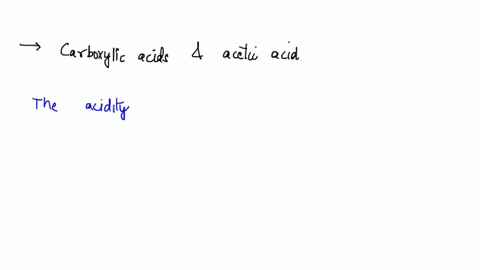 → Carboxylic acids & acetic acid
The acidity